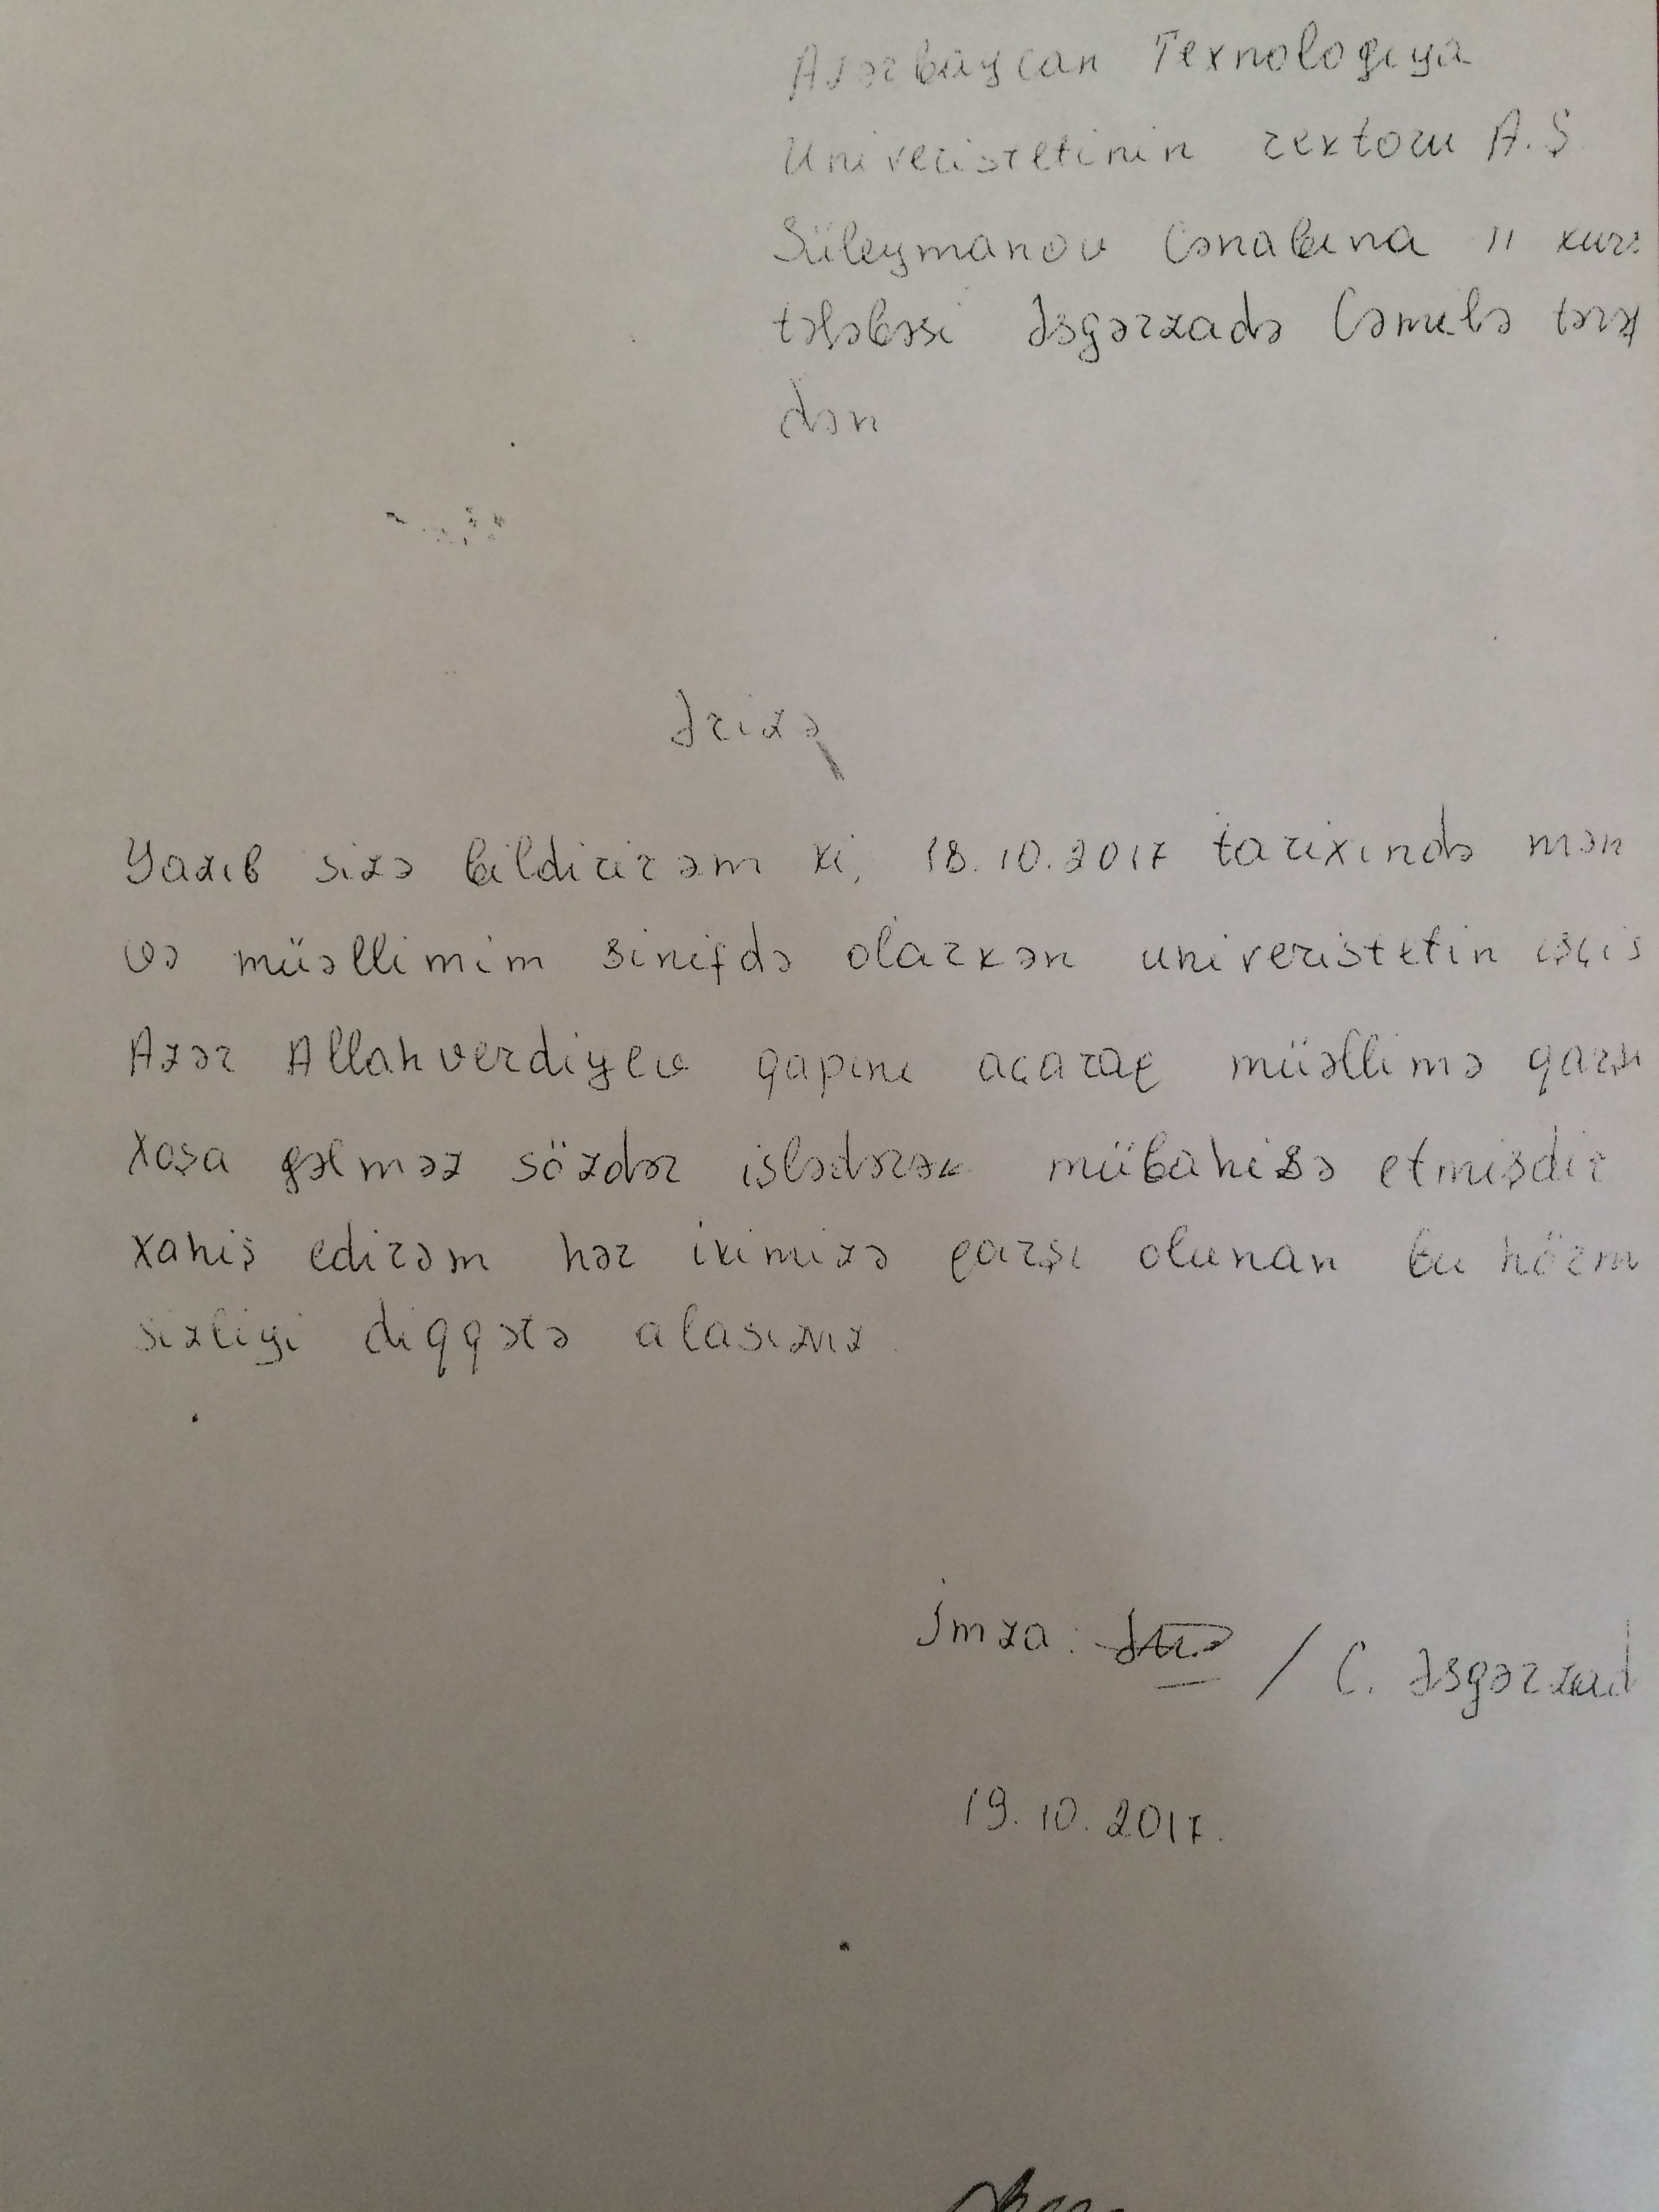 Azərbaycan Texnologiya
Univeristetinin rektoru A.Ş
Süleymanov Cənabına II kurs
tələbəsi Əsgərzadə Cəmilə tərəf
dən
Ərizə
Yazıb sizə bildirirəm ki, 18.10.2017 tarixində mən
və müəllimim sinifdə olarkən univeristetin işçis
Azər Allahverdiyev qapını açaraq müəllimə qarşı
xoşa gəlməz sözdər işlədərək mübahisə etmişdir
xahiş edirəm hər ikimizə qarşı olunan bu hörm
sizliyi diqqətə alasınız
İmza: / C. Əsgərzad
19.10.2017.